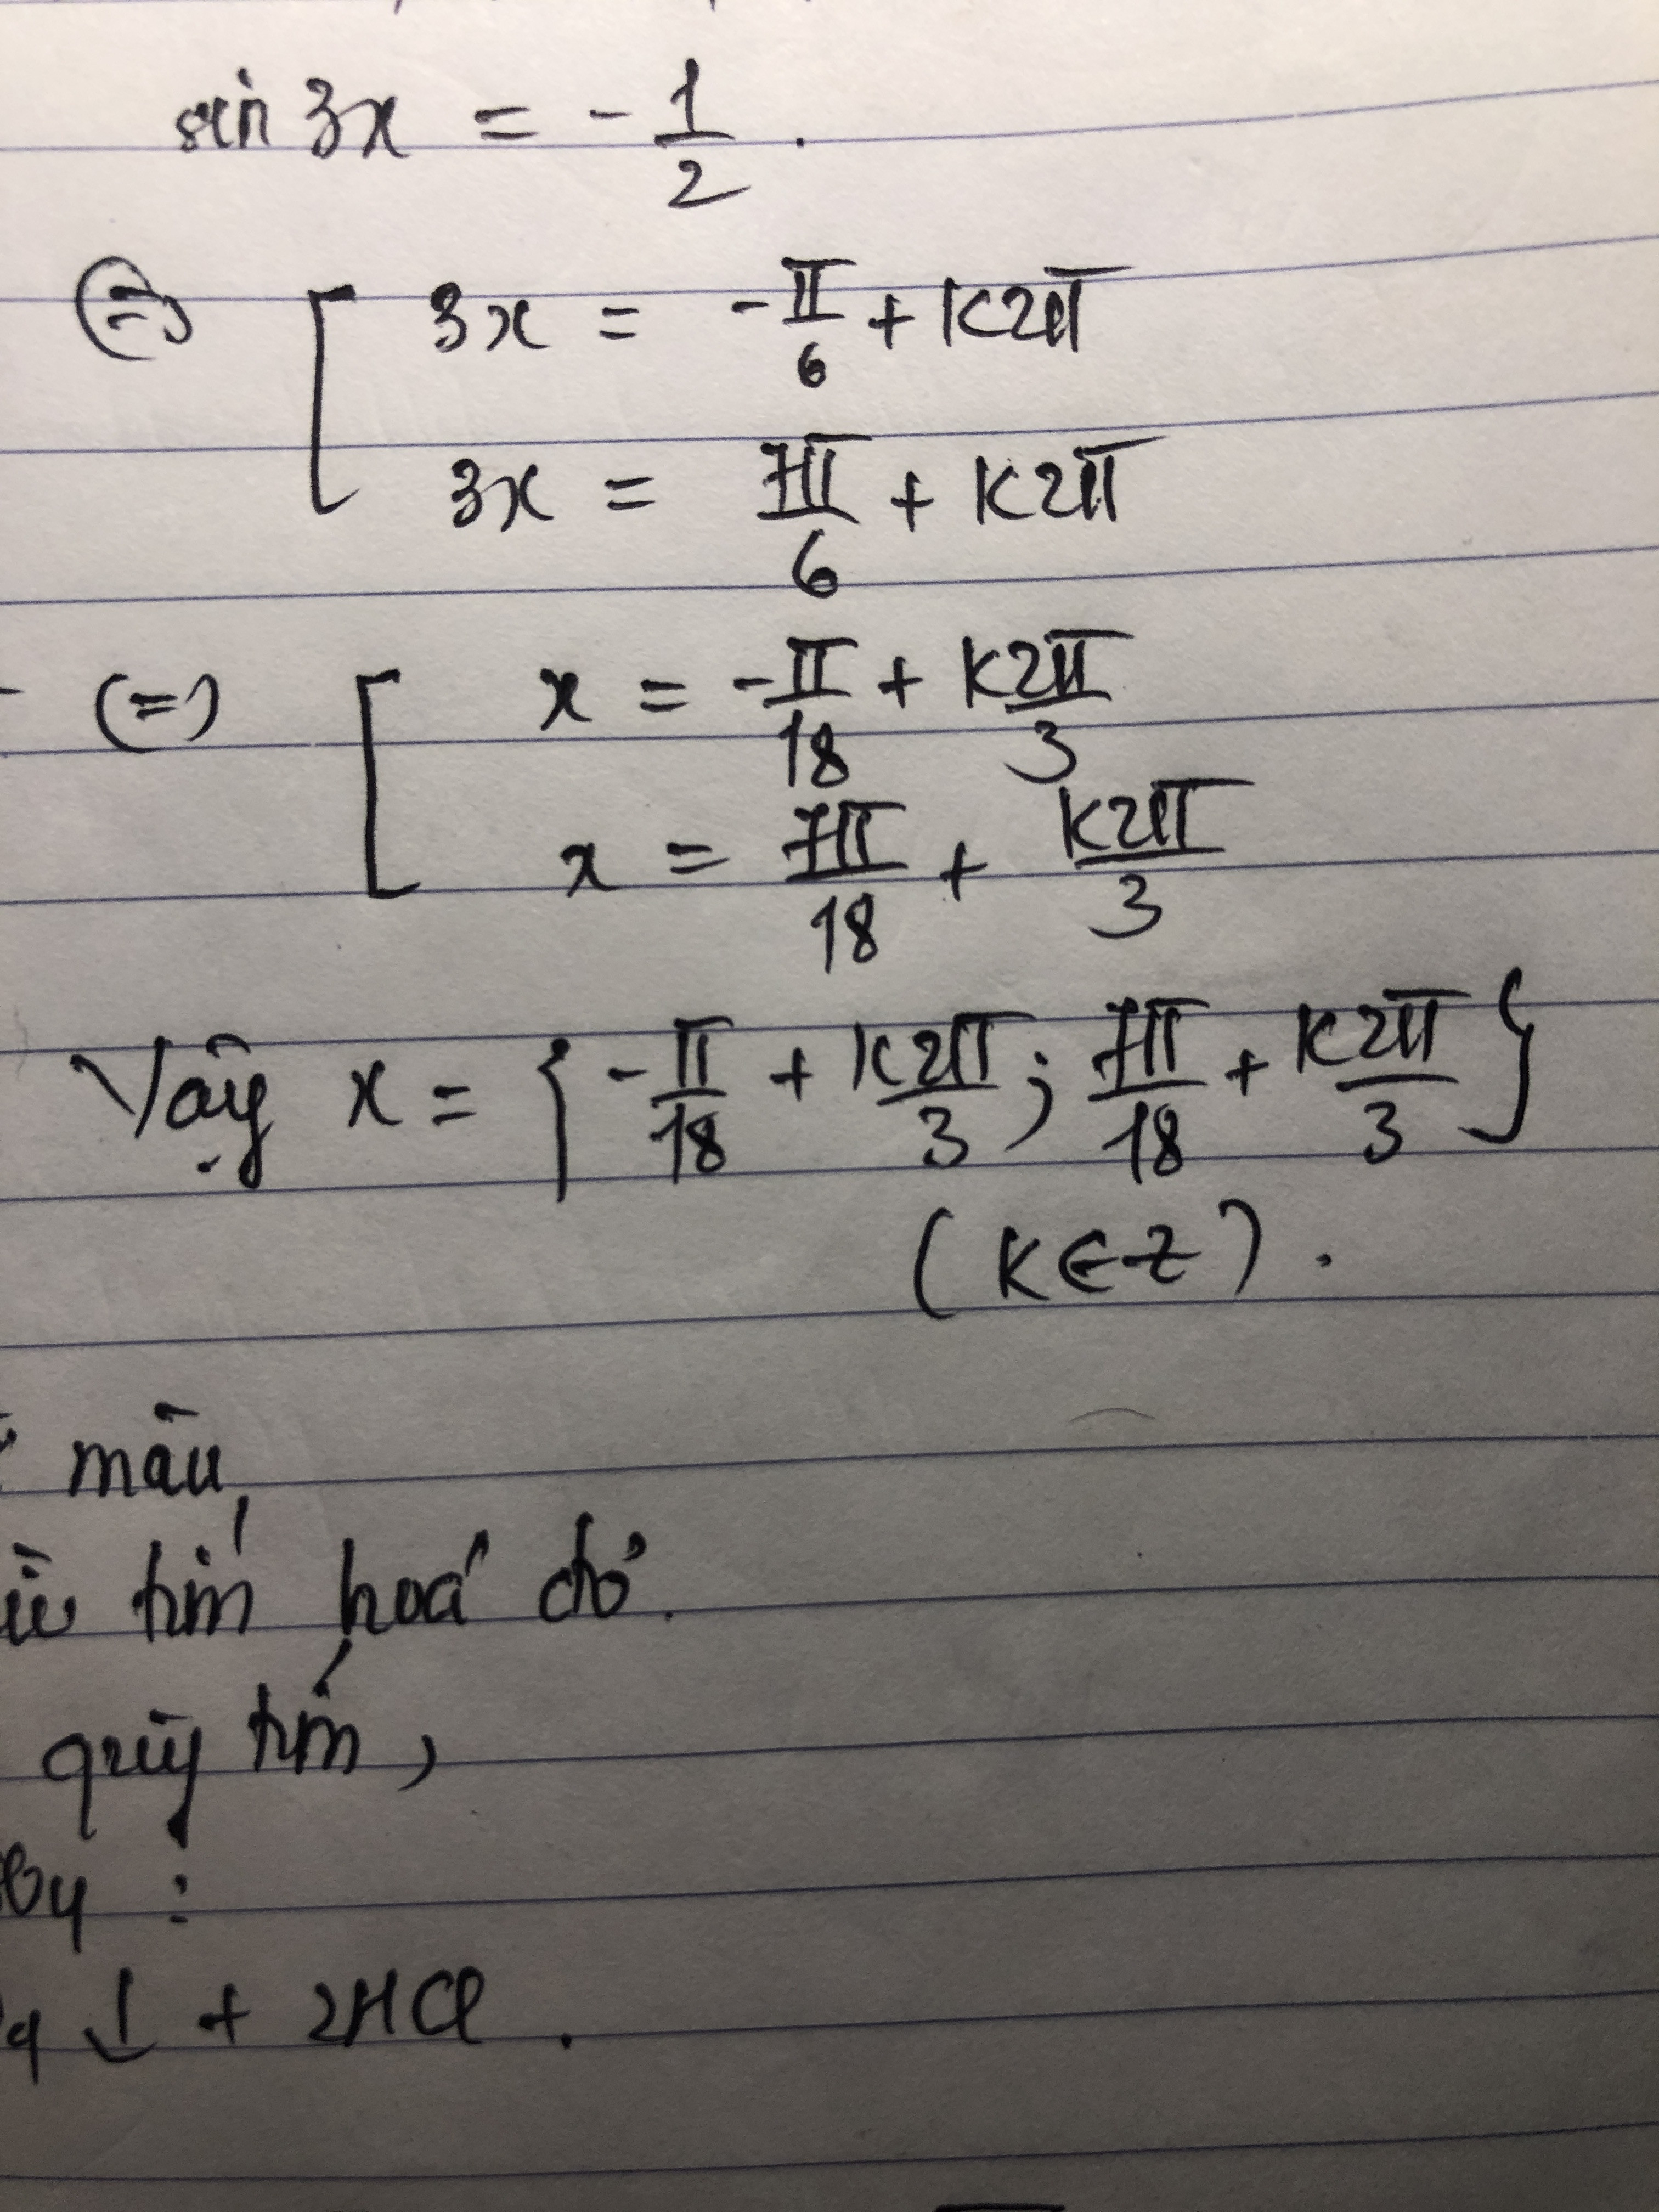 sin 3x = - 1/2 .
(=) [ 3x = -π/6 + k2π
3x = 7π/6 + k2π
(=) [ x = -π/18 + k2π/3
x = 7π/18 + k2π/3
Vậy x = { -π/18 + k2π/3 ; 7π/18 + k2π/3 }
(k ∈ Z) .
mẫu
tím hoá đỏ.
quỳ tím,
↓ + 2HCl .